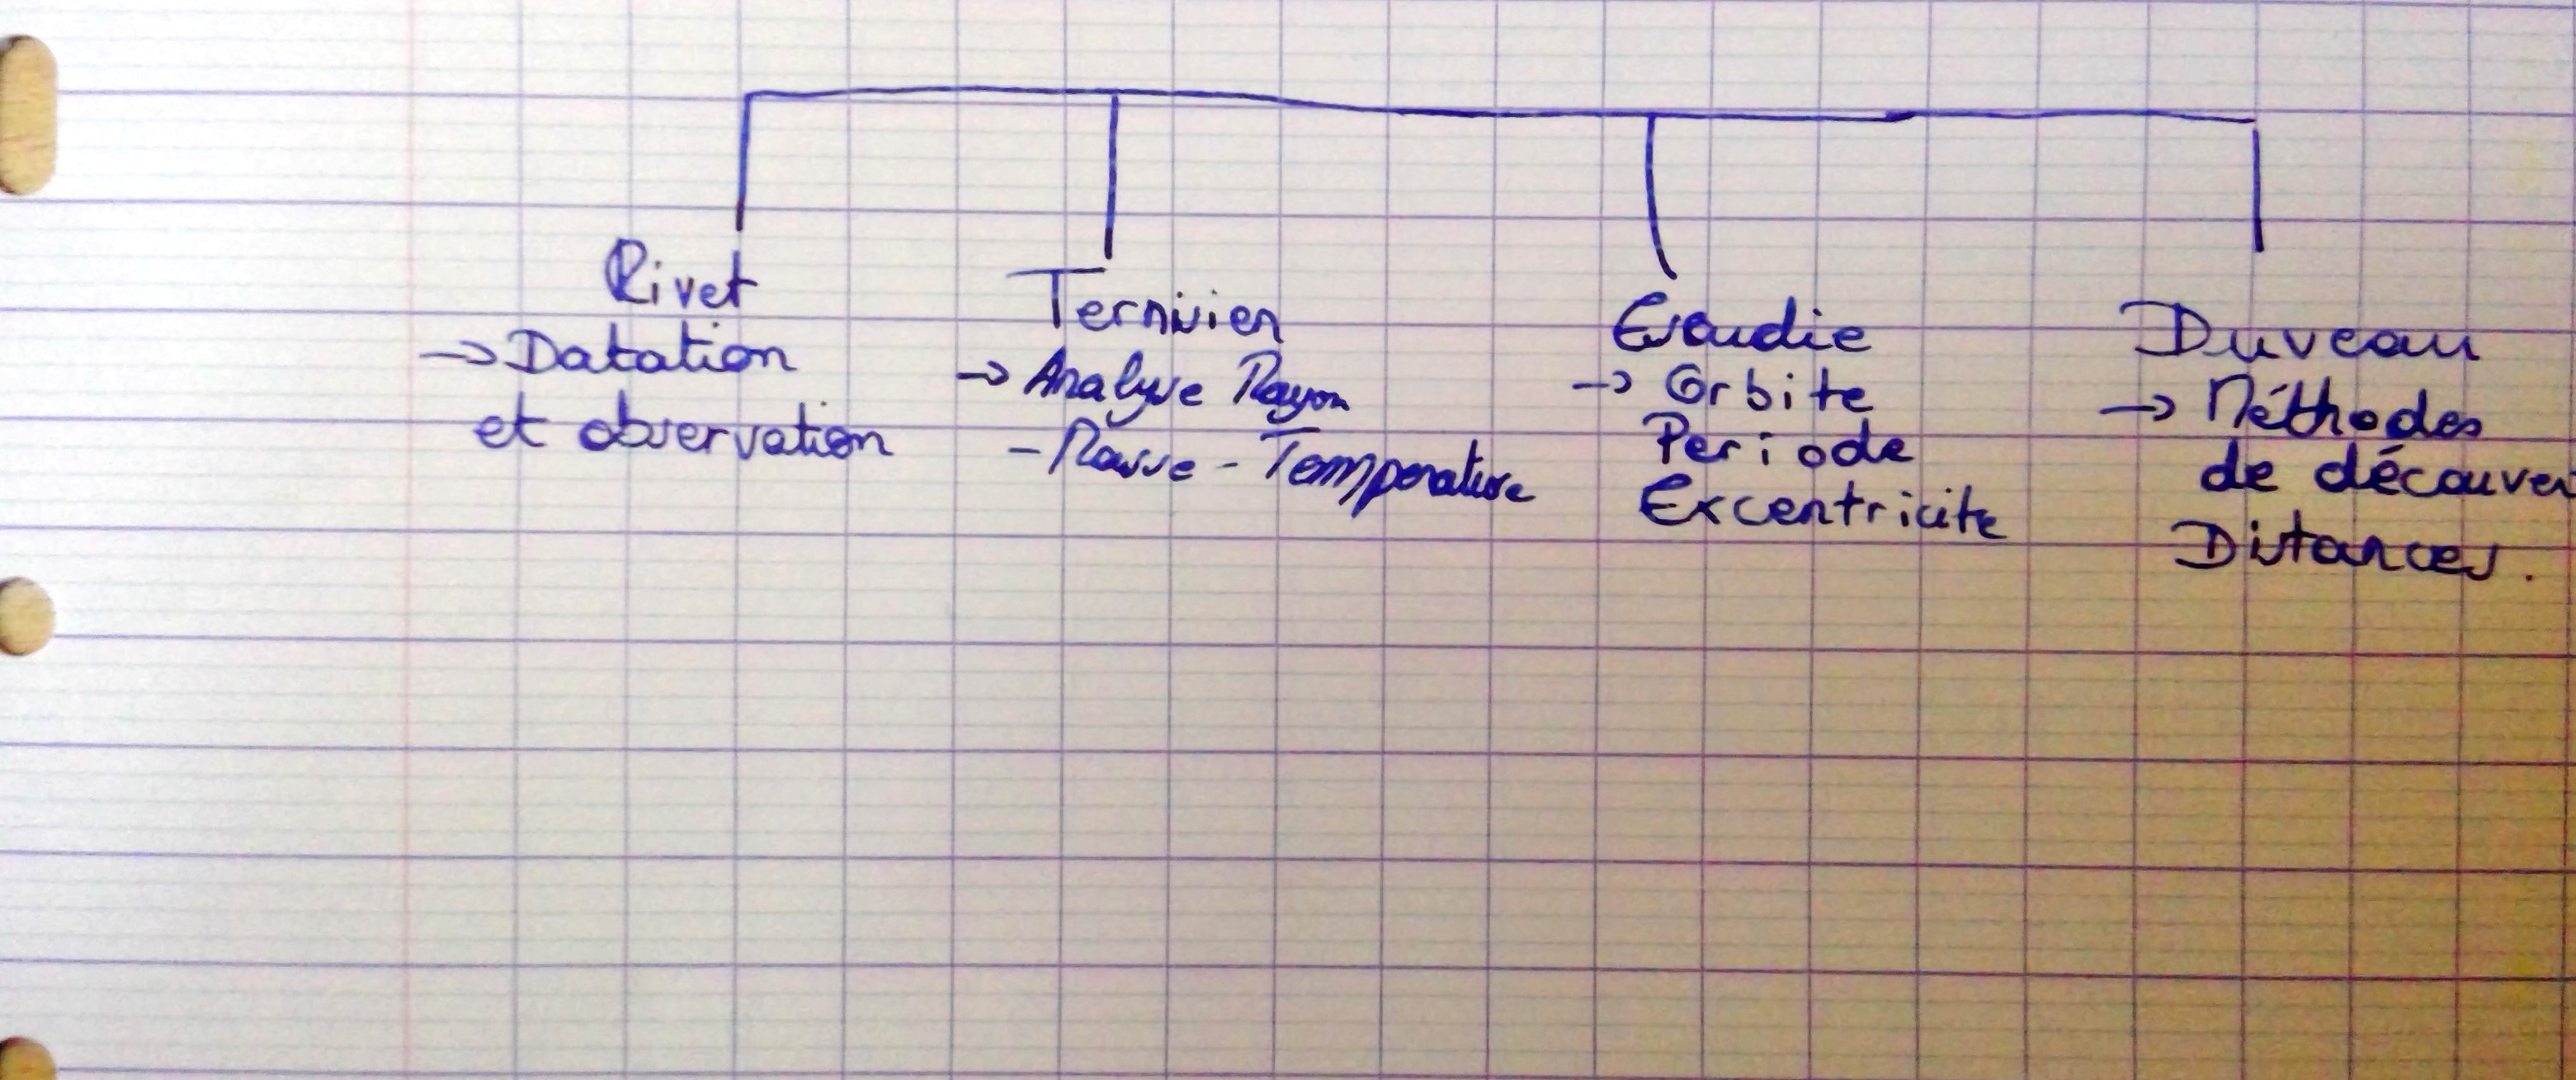 Rivet
→ Datation
et observation
Ternisien
→ Analyse Rayon
- Masse - Temperature
→ Orbite
Periode
Excentricite
Duveau
→ Méthodes
de découver
Distances.